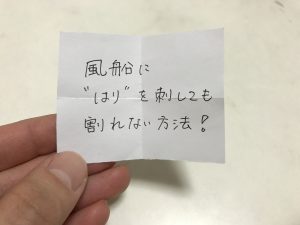 風船に
"はり"を刺しても
割れない方法!